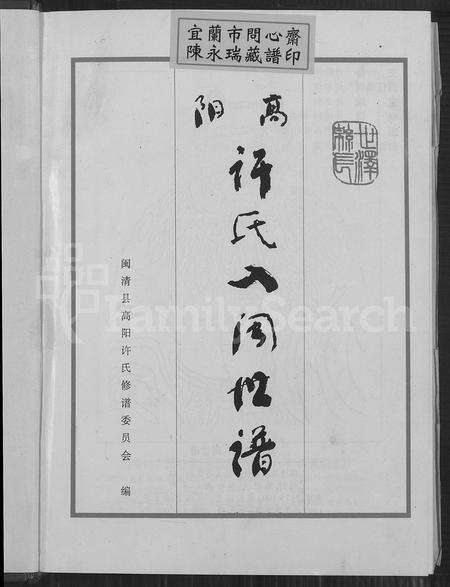 宜蘭市問心齋
陳永瑞藏譜印
高阳
许氏入闽世谱
世澤
綿長
闽清县高阳许氏修谱委员会 编
FamilySearch